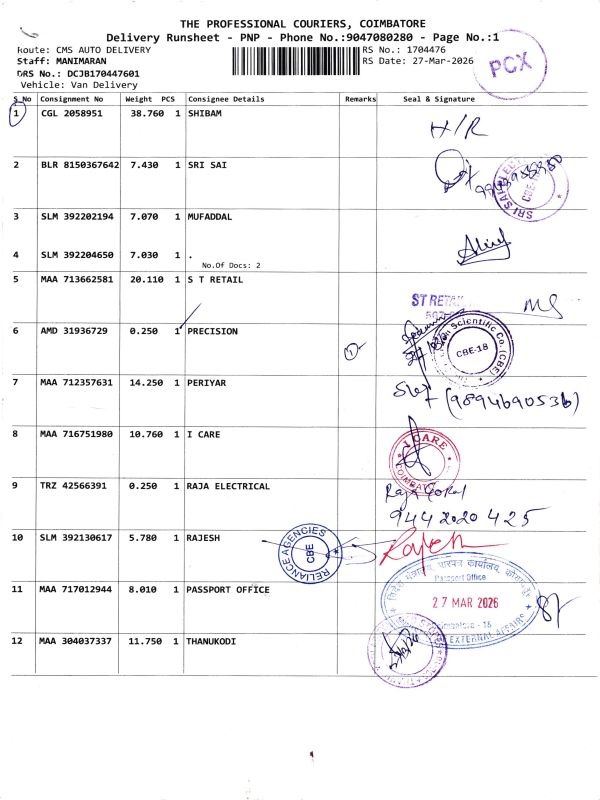 THE PROFESSIONAL COURIERS, COIMBATORE
Delivery Runsheet - PNP - Phone No.:9047080280 - Page No.:1
Route: CMS AUTO DELIVERY
RS No.: 1704476
Staff: MANIMARAN
RS Date: 27-Mar-2026
DRS No.: DCJB170447601
Vehicle: Van Delivery
PCX
S_No Consignment No Weight PCS Consignee Details Remarks Seal & Signature
1 CGL 2058951 38.760 1 SHIBAM
H/R
2 BLR 8150367642 7.430 1 SRI SAI
SRI SAI ELECT
CBE-18
3 SLM 392202194 7.070 1 MUFADDAL
4 SLM 392204650 7.030 1 .
No.Of Docs: 2
5 MAA 713662581 20.110 1 S T RETAIL
ST RETAIL
6 AMD 31936729 0.250 1 PRECISION
1
Scientific Co. (CBE)
CBE-18
7 MAA 712357631 14.250 1 PERIYAR
(9894690536)
8 MAA 716751980 10.760 1 I CARE
I CARE
COIMBATORE
9 TRZ 42566391 0.250 1 RAJA ELECTRICAL
9442020425
10 SLM 392130617 5.780 1 RAJESH
RELIANCE AGENCIES
CBE
Rajesh
11 MAA 717012944 8.010 1 PASSPORT OFFICE
विदेश मंत्रालय, पारपत्र कार्यालय,
Passport Office
27 MAR 2026
Coimbatore - 18
EXTERNAL AFFAIRS
12 MAA 304037337 11.750 1 THANUKODI